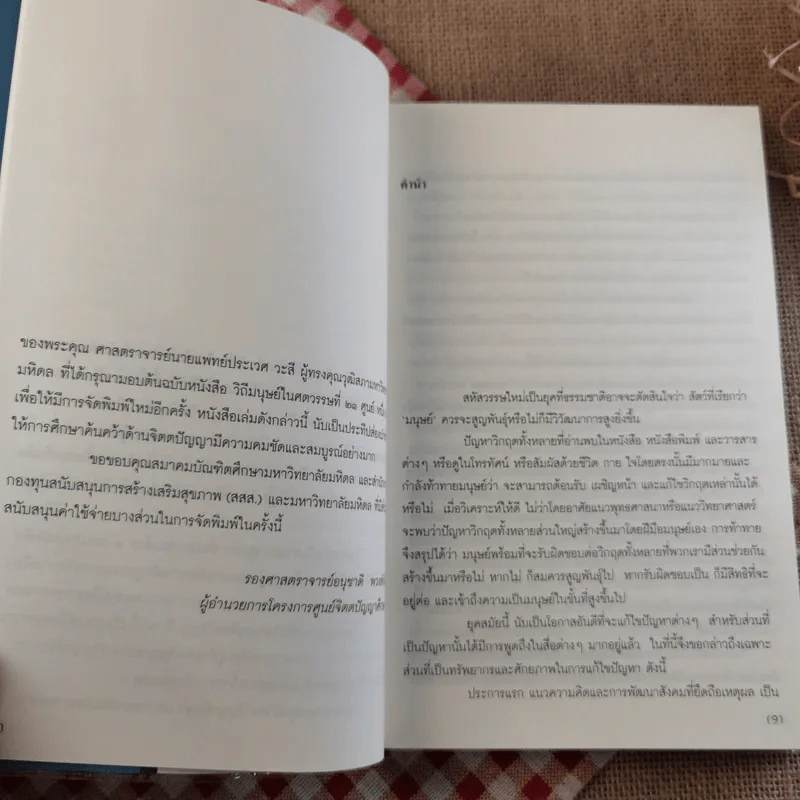 ของพระคุณ ศาสตราจารย์นายแพทย์ประเวศ วะสี ผู้ทรงคุณวุฒิสภามหาวิทย
มหิดล ที่ได้กรุณามอบต้นฉบับหนังสือ วิถีมนุษย์ในศตวรรษที่ ๒๑ ศูนย์
เพื่อให้มีการจัดพิมพ์ใหม่อีกครั้ง หนังสือเล่มดังกล่าวนี้ นับเป็นประทีปส่อง
ให้การศึกษาค้นคว้าด้านจิตตปัญญามีความคมชัดและสมบูรณ์อย่างมาก
ขอขอบคุณสมาคมบัณฑิตศึกษามหาวิทยาลัยมหิดล และสำนัก
กองทุนสนับสนุนการสร้างเสริมสุขภาพ (สสส.) และมหาวิทยาลัยมหิดล ที่ให้
สนับสนุนค่าใช้จ่ายบางส่วนในการจัดพิมพ์ในครั้งนี้
รองศาสตราจารย์อนุชาติ
ผู้อำนวยการโครงการศูนย์จิตตปัญญาศึก
คำนำ
สหัสวรรษใหม่เป็นยุคที่ธรรมชาติอาจจะตัดสินใจว่า สัตว์ที่เรียกว่า
'มนุษย์' ควรจะสูญพันธุ์หรือไม่ก็มีวิวัฒนาการสูงยิ่งขึ้น
ปัญหาวิกฤตทั้งหลายที่อ่านพบในหนังสือ หนังสือพิมพ์ และวารสาร
ต่างๆ หรือดูในโทรทัศน์ หรือสัมผัสด้วยชีวิต กาย ใจโดยตรงนั้นมีมากมายและ
กำลังท้าทายมนุษย์ว่า จะสามารถต้อนรับ เผชิญหน้า และแก้ไขวิกฤตเหล่านั้นได้
หรือไม่ เมื่อวิเคราะห์ให้ดี ไม่ว่าโดยอาศัยแนวพุทธศาสนาหรือแนววิทยาศาสตร์
จะพบว่าปัญหาวิกฤตทั้งหลายส่วนใหญ่สร้างขึ้นมาโดยฝีมือมนุษย์เอง การท้าทาย
จึงสรุปได้ว่า มนุษย์พร้อมที่จะรับผิดชอบต่อวิกฤตทั้งหลายที่พวกเรามีส่วนช่วยกัน
สร้างขึ้นมาหรือไม่ หากไม่ ก็สมควรสูญพันธุ์ไป หากรับผิดชอบเป็น ก็มีสิทธิที่จะ
อยู่ต่อ และเข้าถึงความเป็นมนุษย์ในขั้นที่สูงขึ้นไป
ยุคสมัยนี้ นับเป็นโอกาสอันดีที่จะแก้ไขปัญหาต่างๆ สำหรับส่วนที่
เป็นปัญหานั้นได้มีการพูดถึงในสื่อต่างๆ มากอยู่แล้ว ในที่นี้จึงขอกล่าวถึงเฉพาะ
ส่วนที่เป็นทรัพยากรและศักยภาพในการแก้ไขปัญหา ดังนี้
ประการแรก แนวความคิดและการพัฒนาสังคมที่ยึดถือเหตุผล เป็น
(9)